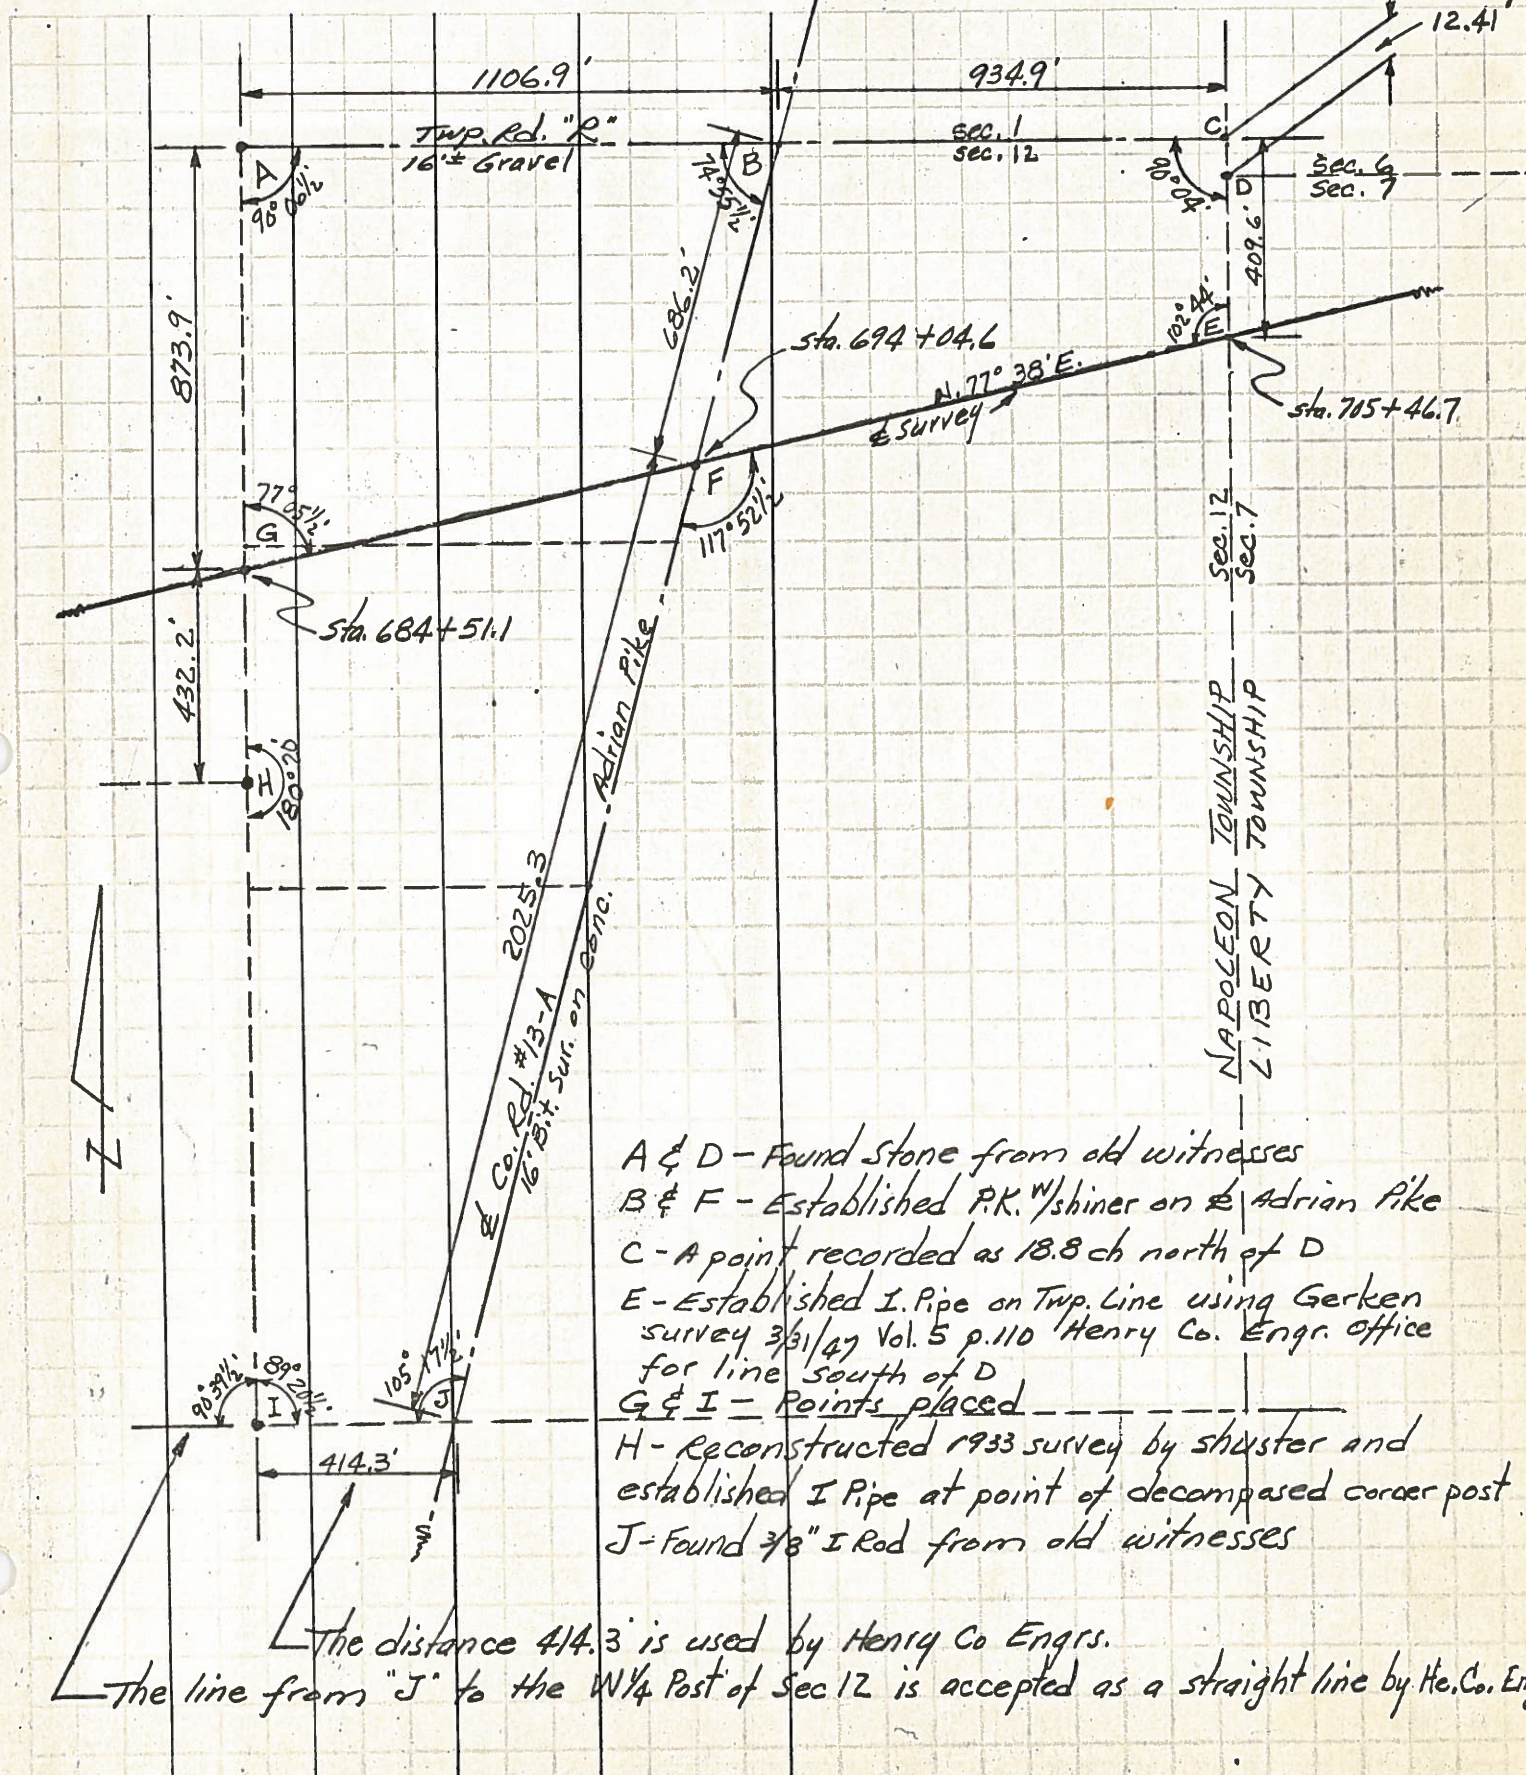 12.41'
1106.9'
934.9'
Twp. Rd. "R"
16'± Gravel
sec. 1
sec. 12
C
A
90° 06½'
B
74° 55½'
90° 04'
D
sec. 6
sec. 7
409.6'
873.9'
686.2'
102° 44'
E
sta. 694 + 04.6
N. 77° 38' E.
℄ survey
sta. 705 + 46.7
77° 05½'
G
F
117° 52½'
sec. 12
sec. 7
sta. 684 + 51.1
432.2'
H
180° 20'
Adrian Pike
NAPOLEON TOWNSHIP
LIBERTY TOWNSHIP
2025.3
℄ Co. Rd. #13-A
16' Bit. Sur. on conc.
N
A & D - Found Stone from old witnesses
B & F - Established P.K. w/shiner on ℄ Adrian Pike
C - A point recorded as 18.8 ch north of D
E - Established I. Pipe on Twp. Line using Gerken
survey 3/31/47 Vol. 5 p.110 Henry Co. Engr. Office
for line south of D
G & I - Points placed
H - Reconstructed 1933 survey by Shuster and
established I Pipe at point of decomposed corner post
J - Found 3/8" I Rod from old witnesses
90° 39½'
89° 20½'
I
105° 17½'
J
414.3'
The distance 414.3' is used by Henry Co Engrs.
The line from "J" to the W¼ Post of Sec 12 is accepted as a straight line by He. Co. En